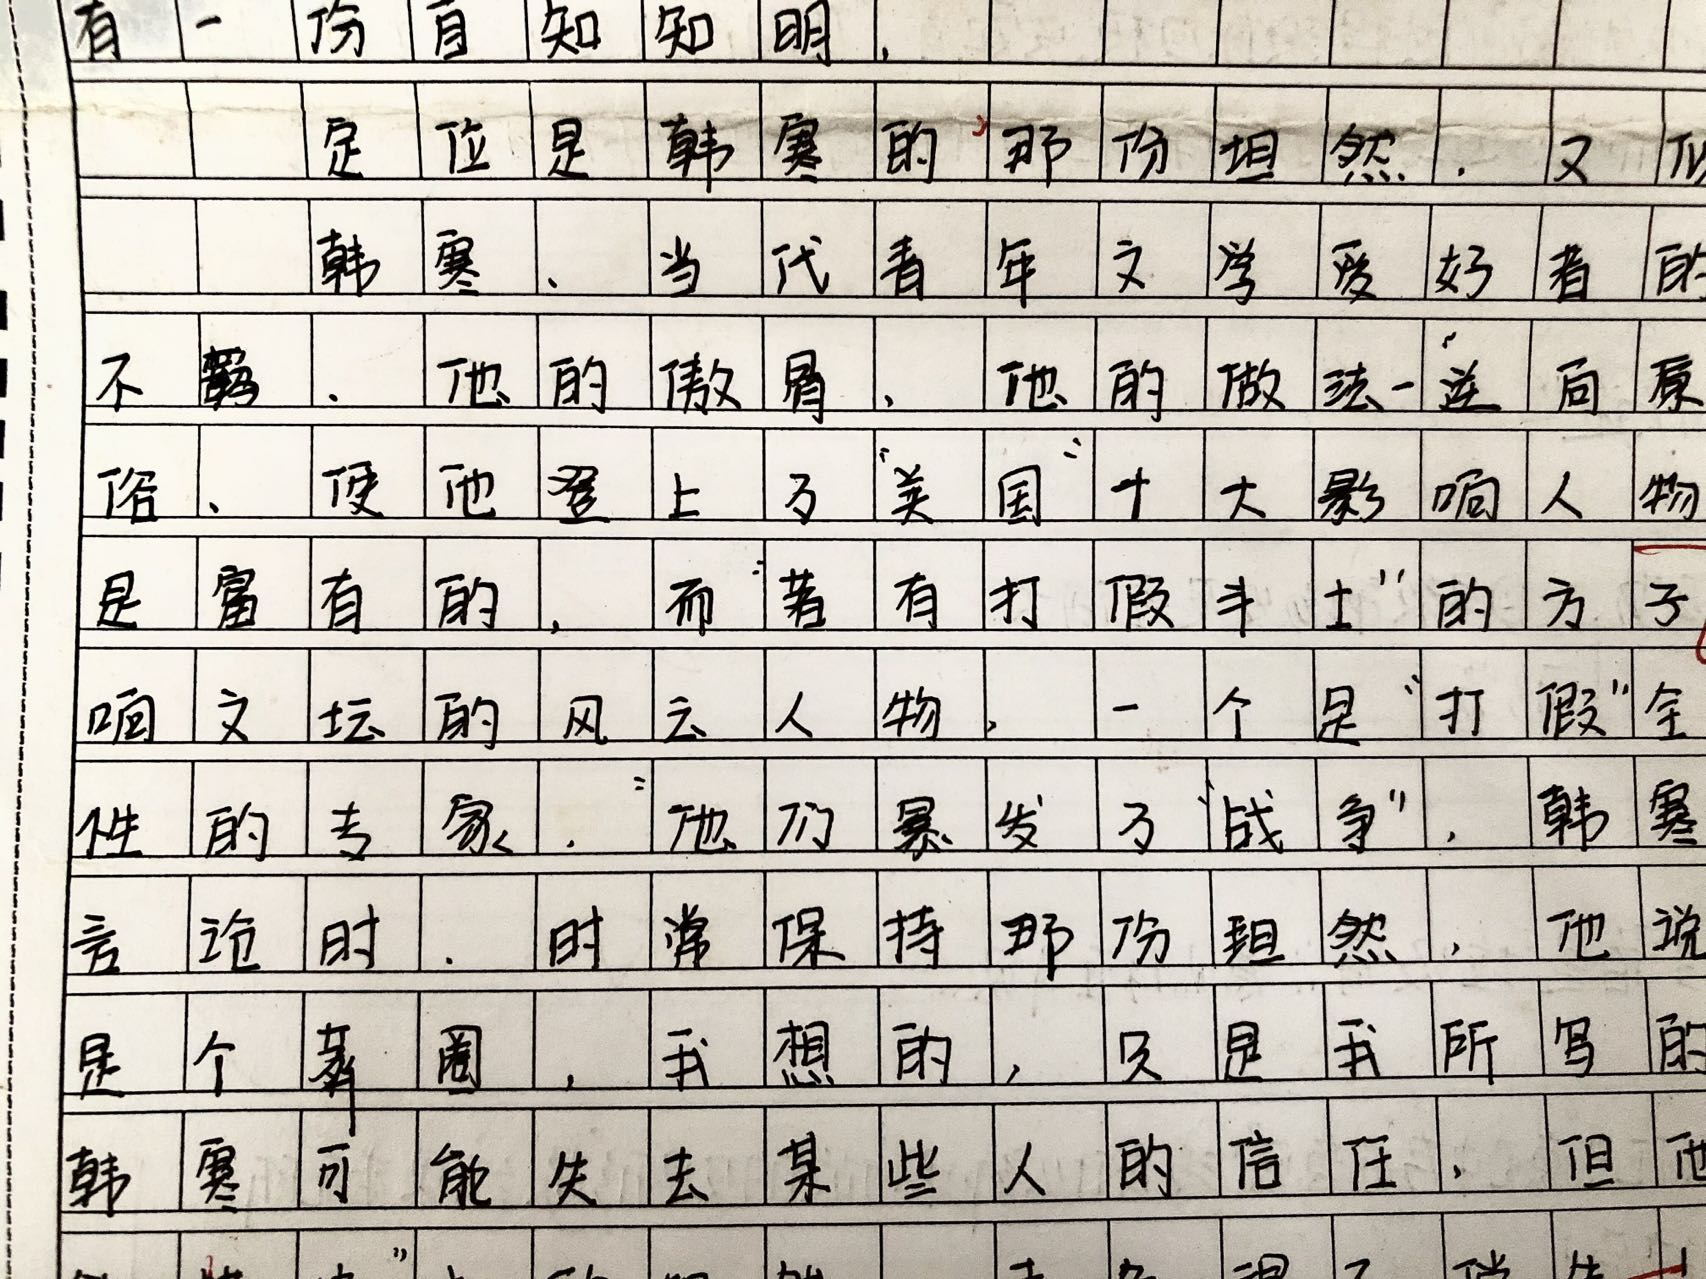 有一份自知知明，
定位是韩寒的那份坦然．又似
韩寒、当代青年文学爱好者的
不羁．他的傲骨，他的做法一逆向原
俗、使他登上了“美国”十大影响人物
是富有的，而“著有打假斗士”的方子
响文坛的风云人物，一个是“打假”全
性的专家．“他们暴发了“战争”，韩寒
言论时．时常保持那份坦然，他说
是个粪圈，我想的，只是我所写的
韩寒可能失去某些人的信任，但他